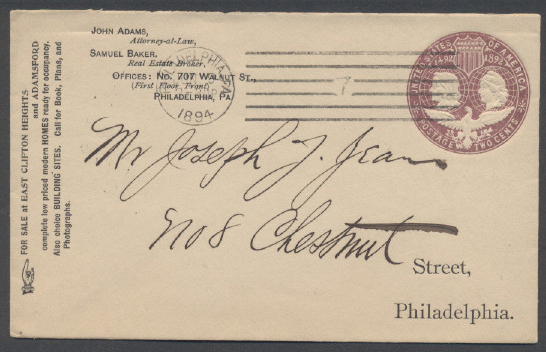 JOHN ADAMS,
Attorney-at-Law,
SAMUEL BAKER,
Real Estate Broker,
OFFICES: NO. 707 WALNUT ST.,
(First Floor, Front)
PHILADELPHIA, PA
FOR SALE at EAST CLIFTON HEIGHTS
and ADAMSFORD
complete low priced modern HOMES ready for occupancy.
Also choice BUILDING SITES. Call for Book, Plans, and
Photographs.
PHILADELPHIA, PA
1894
7
UNITED STATES OF AMERICA
1492 1892
POSTAGE TWO CENTS
Mr Joseph J. Jeans
No 8 Chestnut
Street,
Philadelphia.